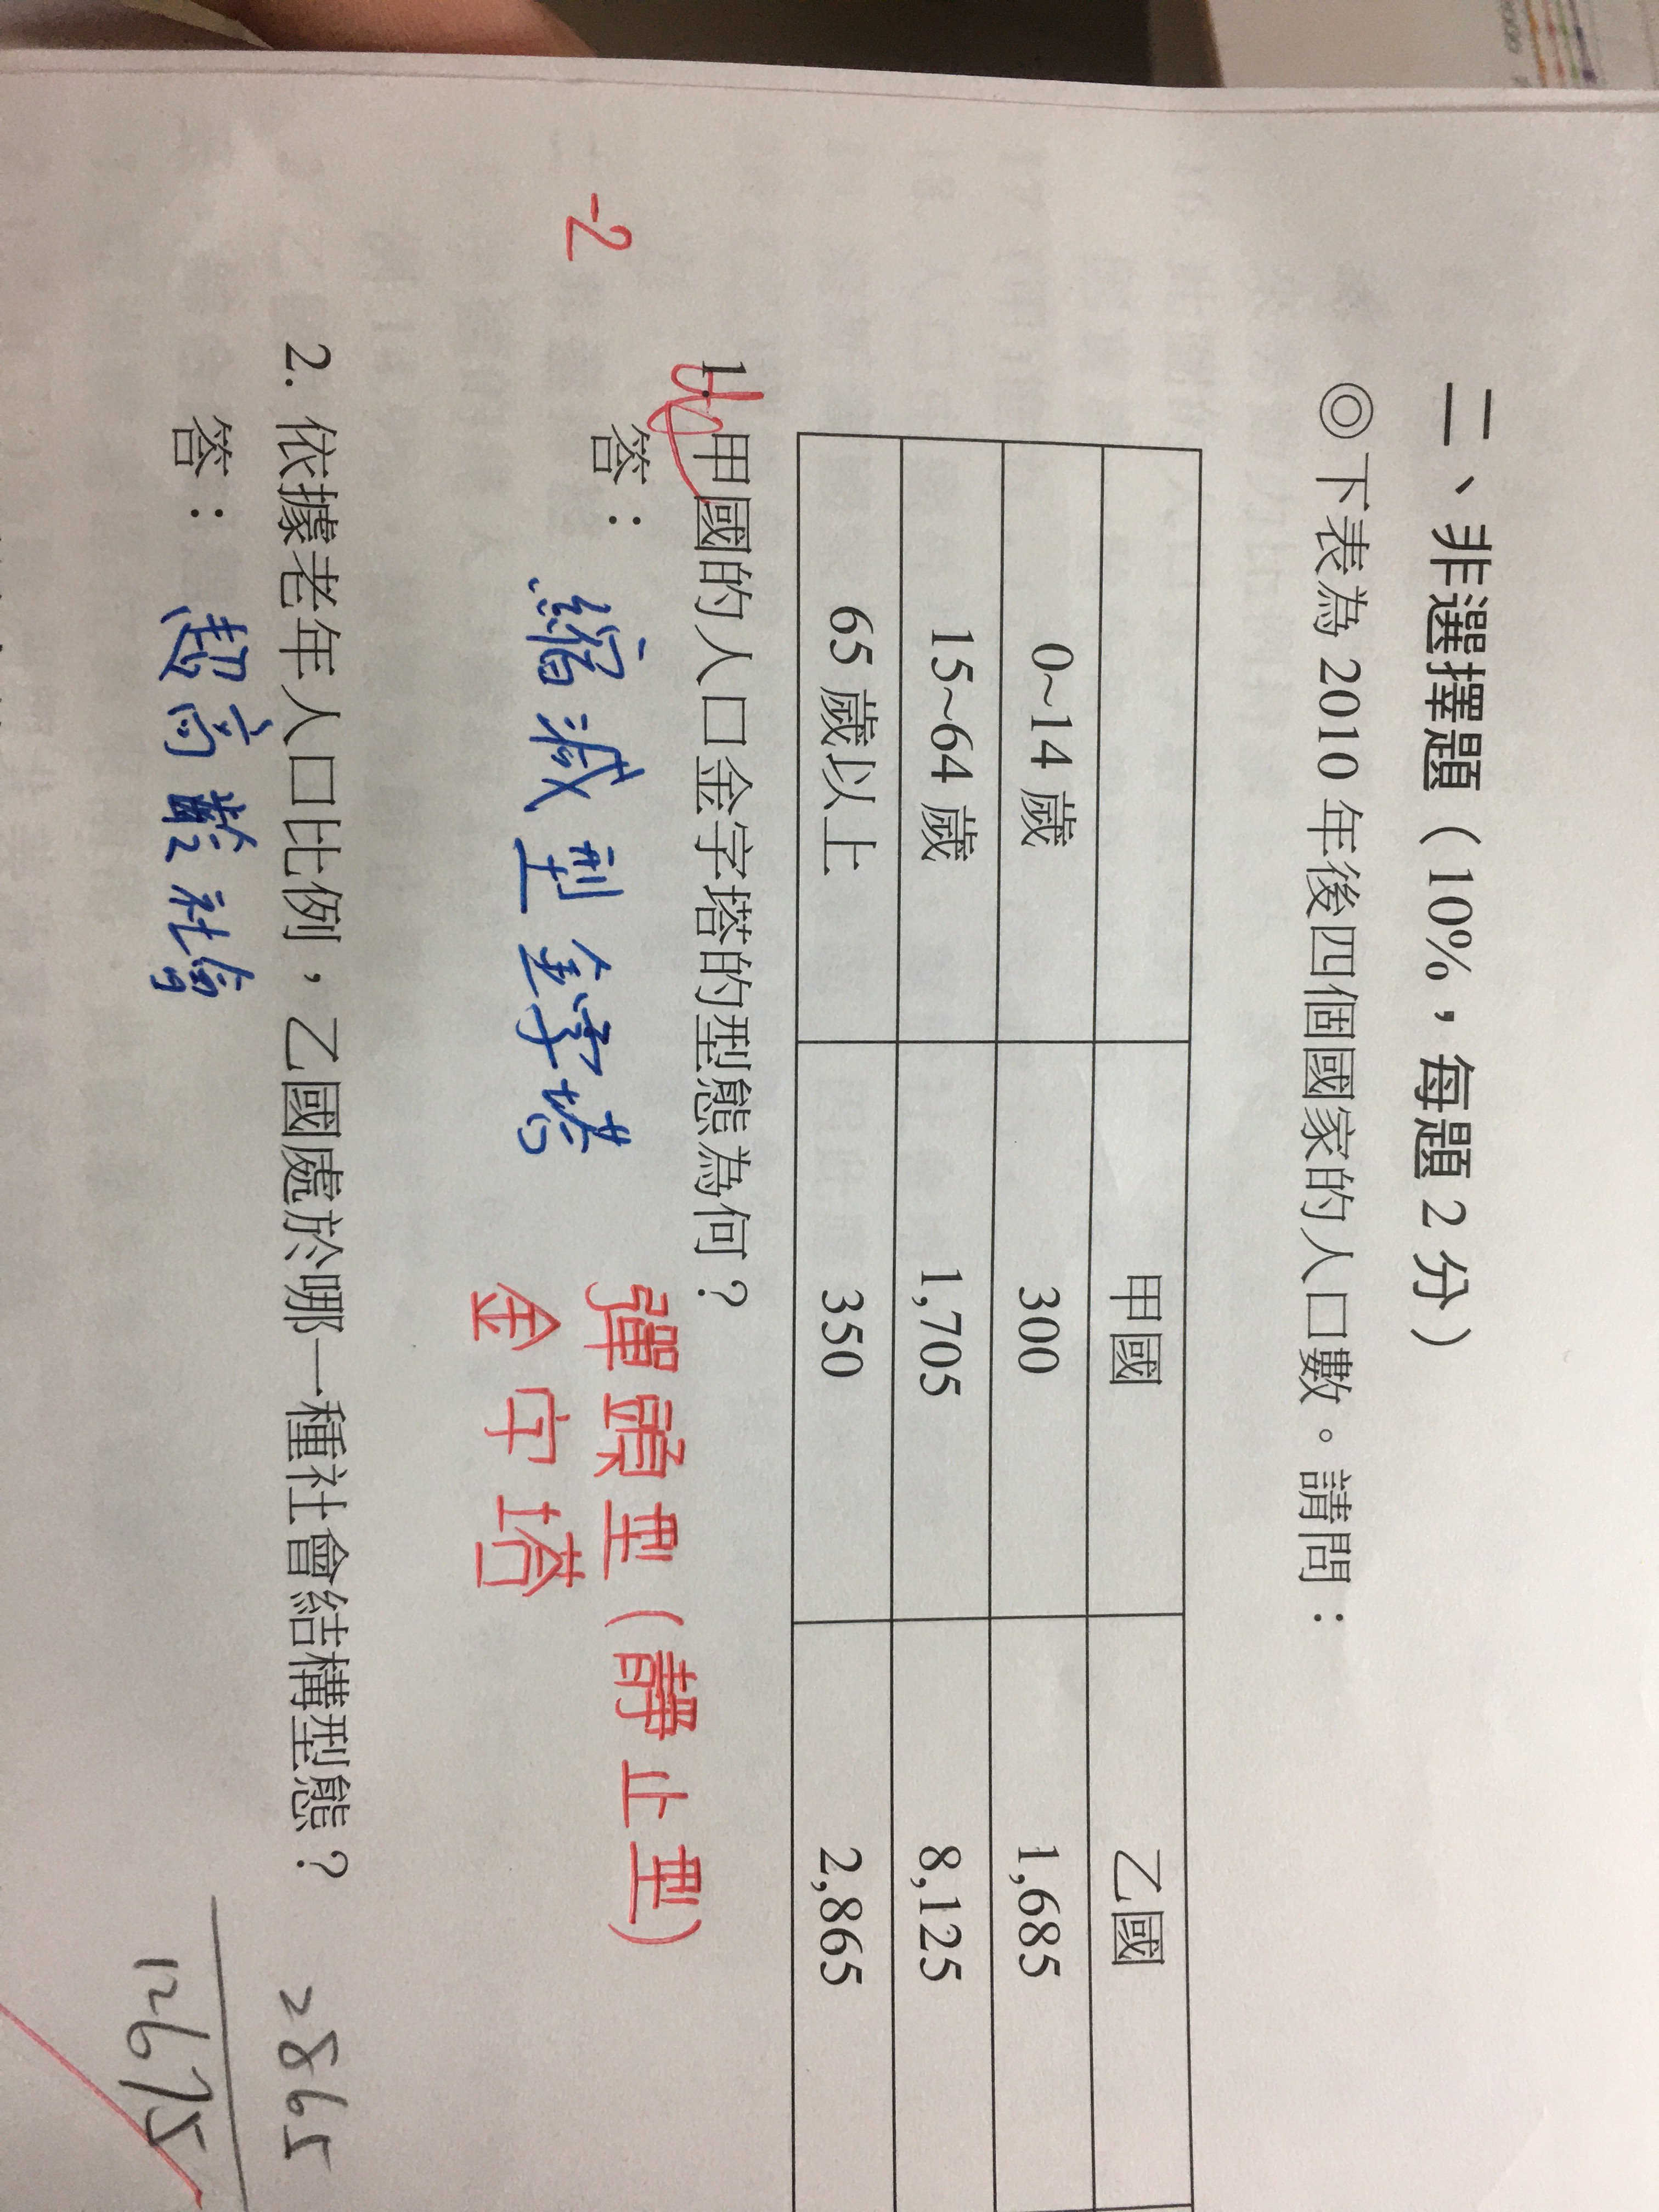 二、非選擇題（10%，每題 2 分）
◎下表為 2010 年後四個國家的人口數。請問：
甲國 乙國
0~14 歲 300 1,685
15~64 歲 1,705 8,125
65 歲以上 350 2,865
1. 甲國的人口金字塔的型態為何？
-2
答： 縮減型金字塔 彈頭型(靜止型)
金字塔
2. 依據老年人口比例，乙國處於哪一種社會結構型態？
答： 超高齡社會
2865
12675